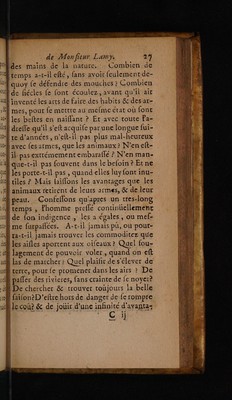 de Monsieur Lamy. 27
des mains de la nature. Combien de
temps a-t-il esté, sans avoir seulement de-
quoy se défendre des mouches? Combien
de siécles se sont écoulez, avant qu'il ait
inventé les arts de faire des habits & des ar-
mes, pour se mettre au mesme état où sont
les bestes en naissant? Et avec toute l'a-
dresse qu'il s'est acquise par une longue sui-
te d'années, n'est-il pas plus mal-heureux
avec ses armes, que les animaux? N'en est-
il pas extrémement embarassé? N'en man-
que-t-il pas souvent dans le besoin? Et ne
les porte-t-il pas, quand elles luy sont inu-
tiles? Mais laissons les avantages que les
animaux retirent de leurs armes, & de leur
peau. Confessons qu'apres un tres-long
temps, l'homme pressé continüellement
de son indigence, les a égalez, ou mes-
me surpassées. A-t-il jamais pû, ou pour-
ra-t-il jamais trouver les commoditez que
les aisles apportent aux oiseaux? Quel sou-
lagement de pouvoir voler, quand on est
las de marcher? Quel plaisir de s'élever de
terre, pour se promener dans les airs? De
passer des rivieres, sans crainte de se noyer?
De chercher & trouver toûjours la belle
saison? D'estre hors de danger de se rompre
le coû? & de joüir d'une infinité d'avanta-
C ij